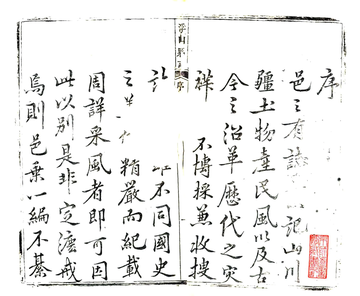 序
邑之有誌 以記山川
疆土物產民風以及古
今之沿革歷代之灾
祥 不博採兼收搜
訖 不同國史
之 精嚴而紀載
周詳采風者即可因
此以別是非定濾戒
焉則邑乗一編不綦